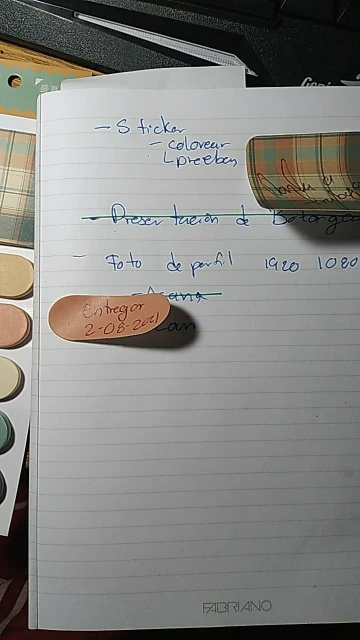 - Sticker
- colorear
pruebas
- Presentación de
- Foto de perfil 1920 1080
Entregar
2-08-2021
FABRIANO